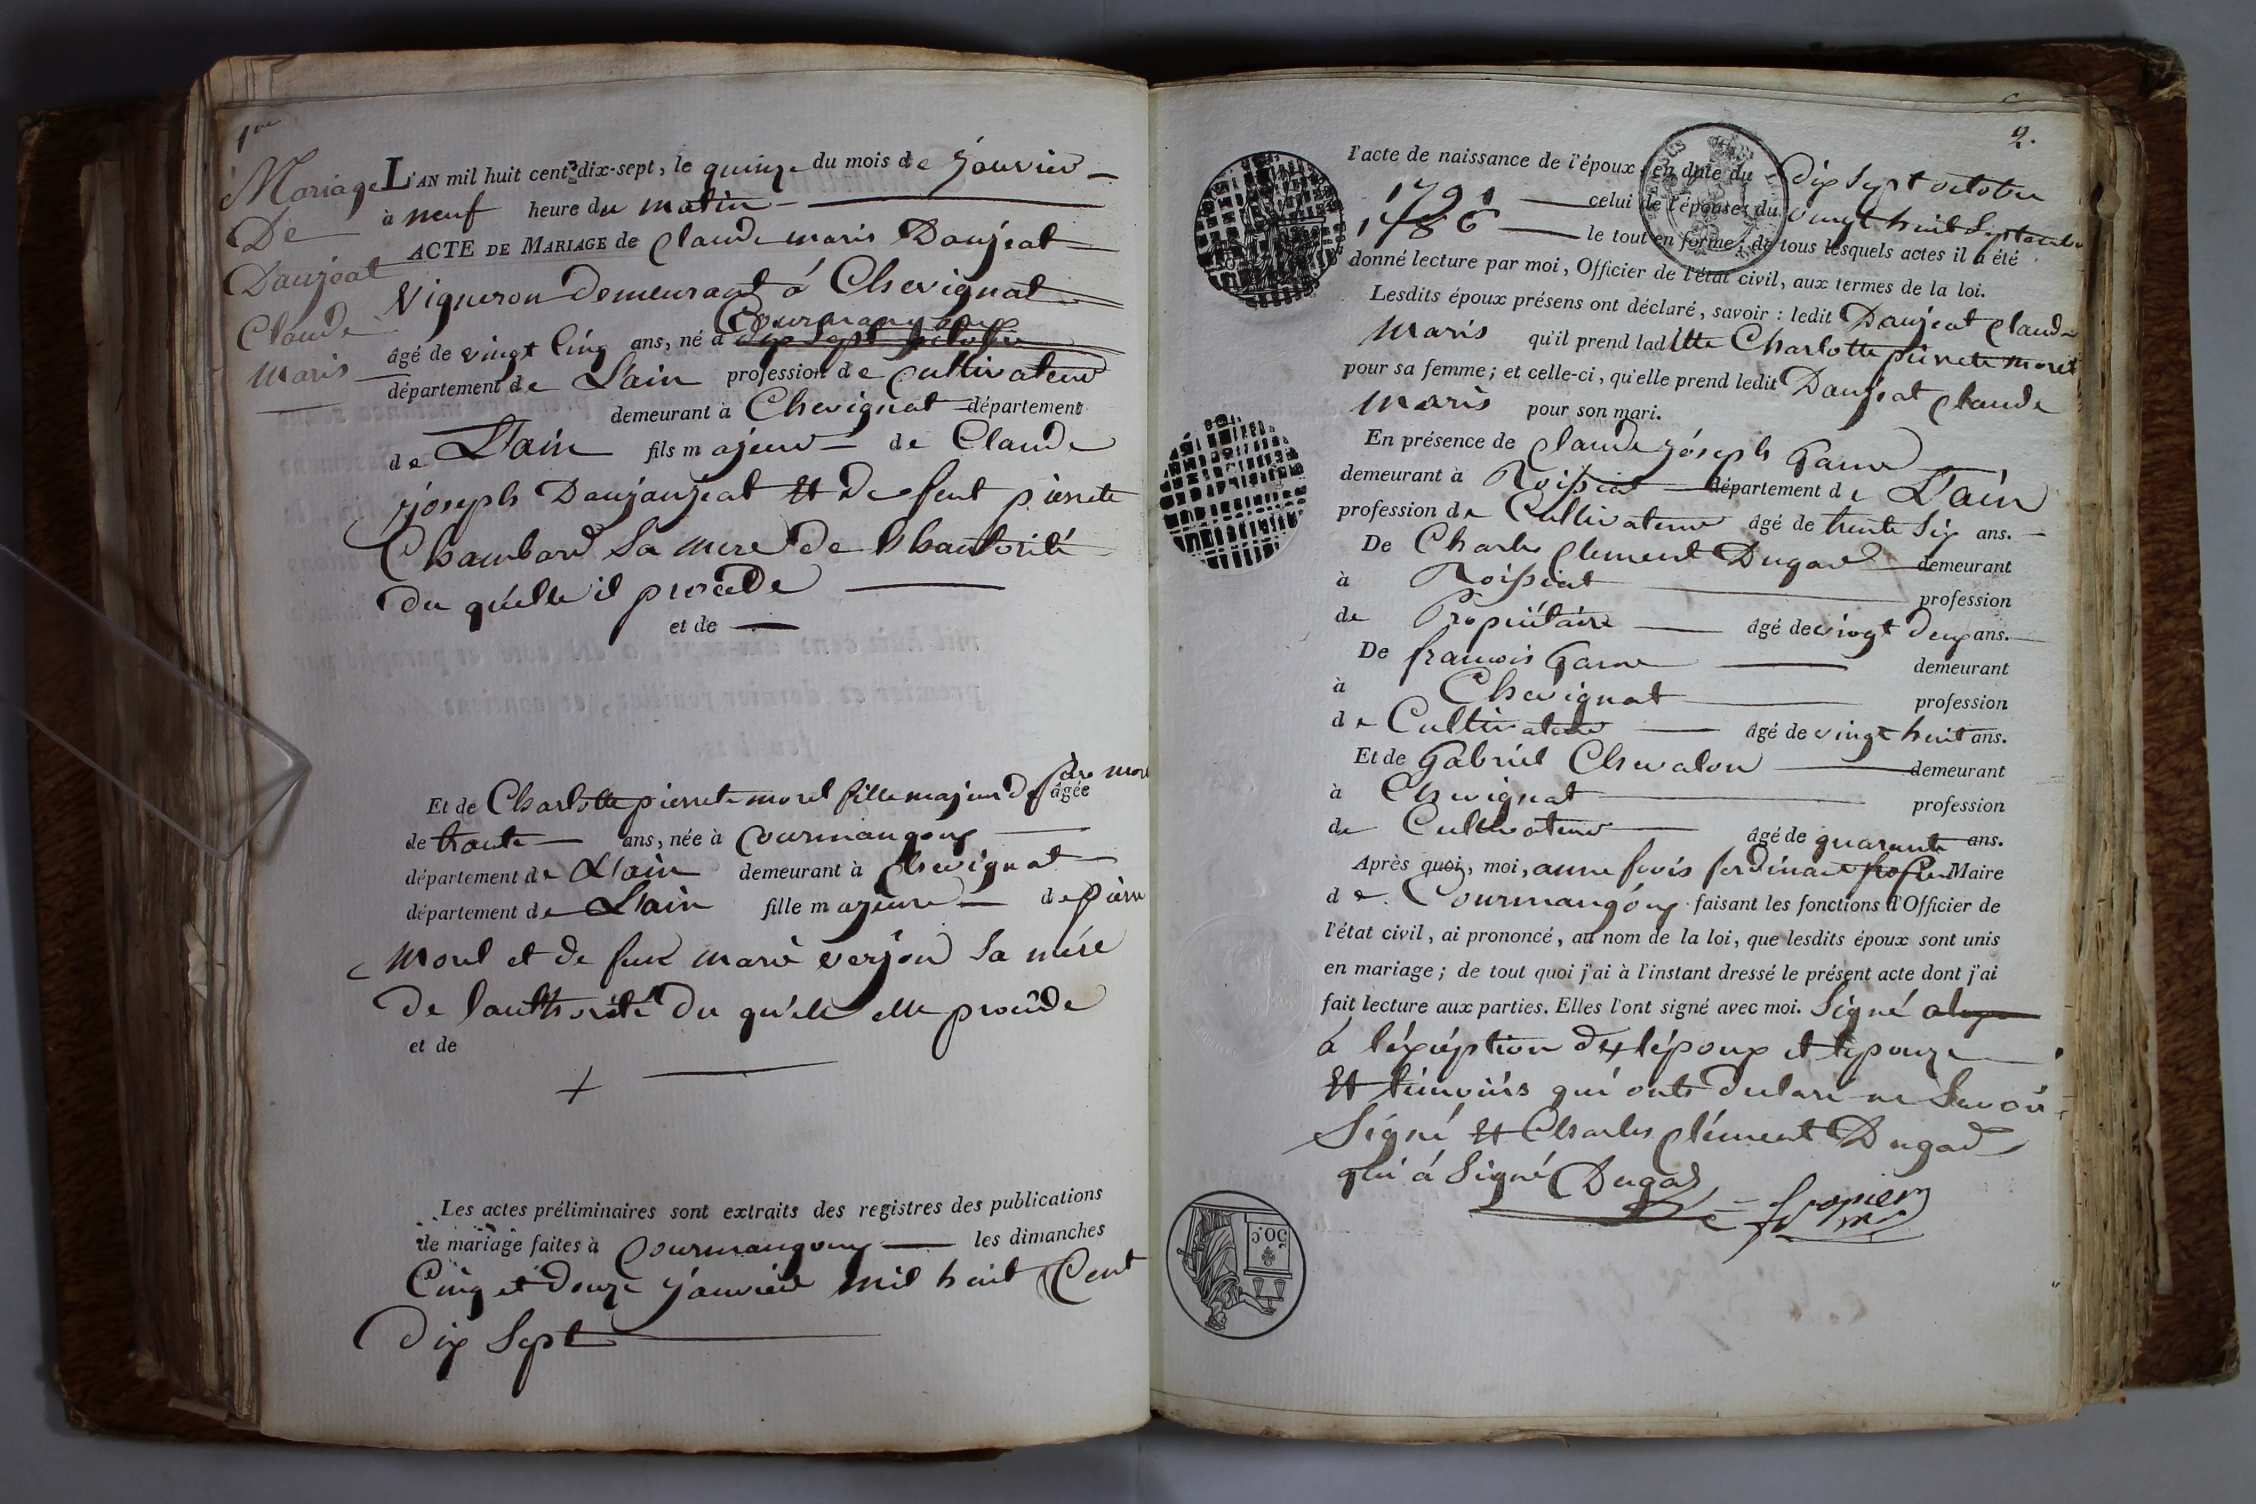 1re
Mariage
De
Daujeat
Claude
maris
L'AN mil huit cent dix-sept, le quinze du mois de janvier
à neuf heure du matin
ACTE DE MARIAGE de Claude maris Daujeat
Vigneron demeurant à Chevignat
Courmangoux
âgé de vingt cinq ans, né à dix sept octobre
département de L'ain profession de Cultivateur
demeurant à Chevignat département
de L'ain fils majeur de Claude
joseph Daujaujeat et De feut pierrete
Chambard Sa mere De Lhautorité
du quelle il procède
et de
Et de Charlotte pierrete morel fille majeur de pierre morel âgée
de trante ans, née à Courmangoux
département de L'ain demeurant à Chevignat
département de L'ain fille majeure de pierre
Morel et de feux marie verjon Sa mére
de lauthorité Du qu'elle elle procède
et de
Les actes préliminaires sont extraits des registres des publications
de mariage faites à Courmangoux les dimanches
Cinq et douze janvier mil huit Cent
dix Sept
2.
l'acte de naissance de l'époux en date du Dix Sept octobre
1791 celui de l'épouse, du vingt huit Septembre
1786 le tout en forme; de tous lesquels actes il a été
donné lecture par moi, Officier de l'état civil, aux termes de la loi.
Lesdits époux présens ont déclaré, savoir : ledit Daujeat Claude
Maris qu'il prend laditte Charlotte pierrete morel
pour sa femme; et celle-ci, qu'elle prend ledit Daujeat Claude
Maris pour son mari.
En présence de Claude jóseph Garne
demeurant à Roissiat département de L'ain
profession de Cultivateur âgé de trente Six ans.
De Charles Clement Dugad demeurant
à Roissiat profession
de Propriétaire âgé de vingt deux ans.
De francois Garne demeurant
à Chevignat profession
de Cultivateur âgé de vingt huit ans.
Et de Gabriel Chevalon demeurant
à Chevignat profession
de Cultivateur âgé de quarante ans.
Après quoi, moi, anne fois ferdinand Maire
de Courmangóux faisant les fonctions d'Officier de
l'état civil, ai prononcé, au nom de la loi, que lesdits époux sont unis
en mariage; de tout quoi j'ai à l'instant dressé le présent acte dont j'ai
fait lecture aux parties. Elles l'ont signé avec moi. Signé
à l'éxéption de lépoux et lépouze
et témoins qui onts declaré ne Savoir
Signé et Charles Clément Dugad
qui á Signé Dugad
50 c.